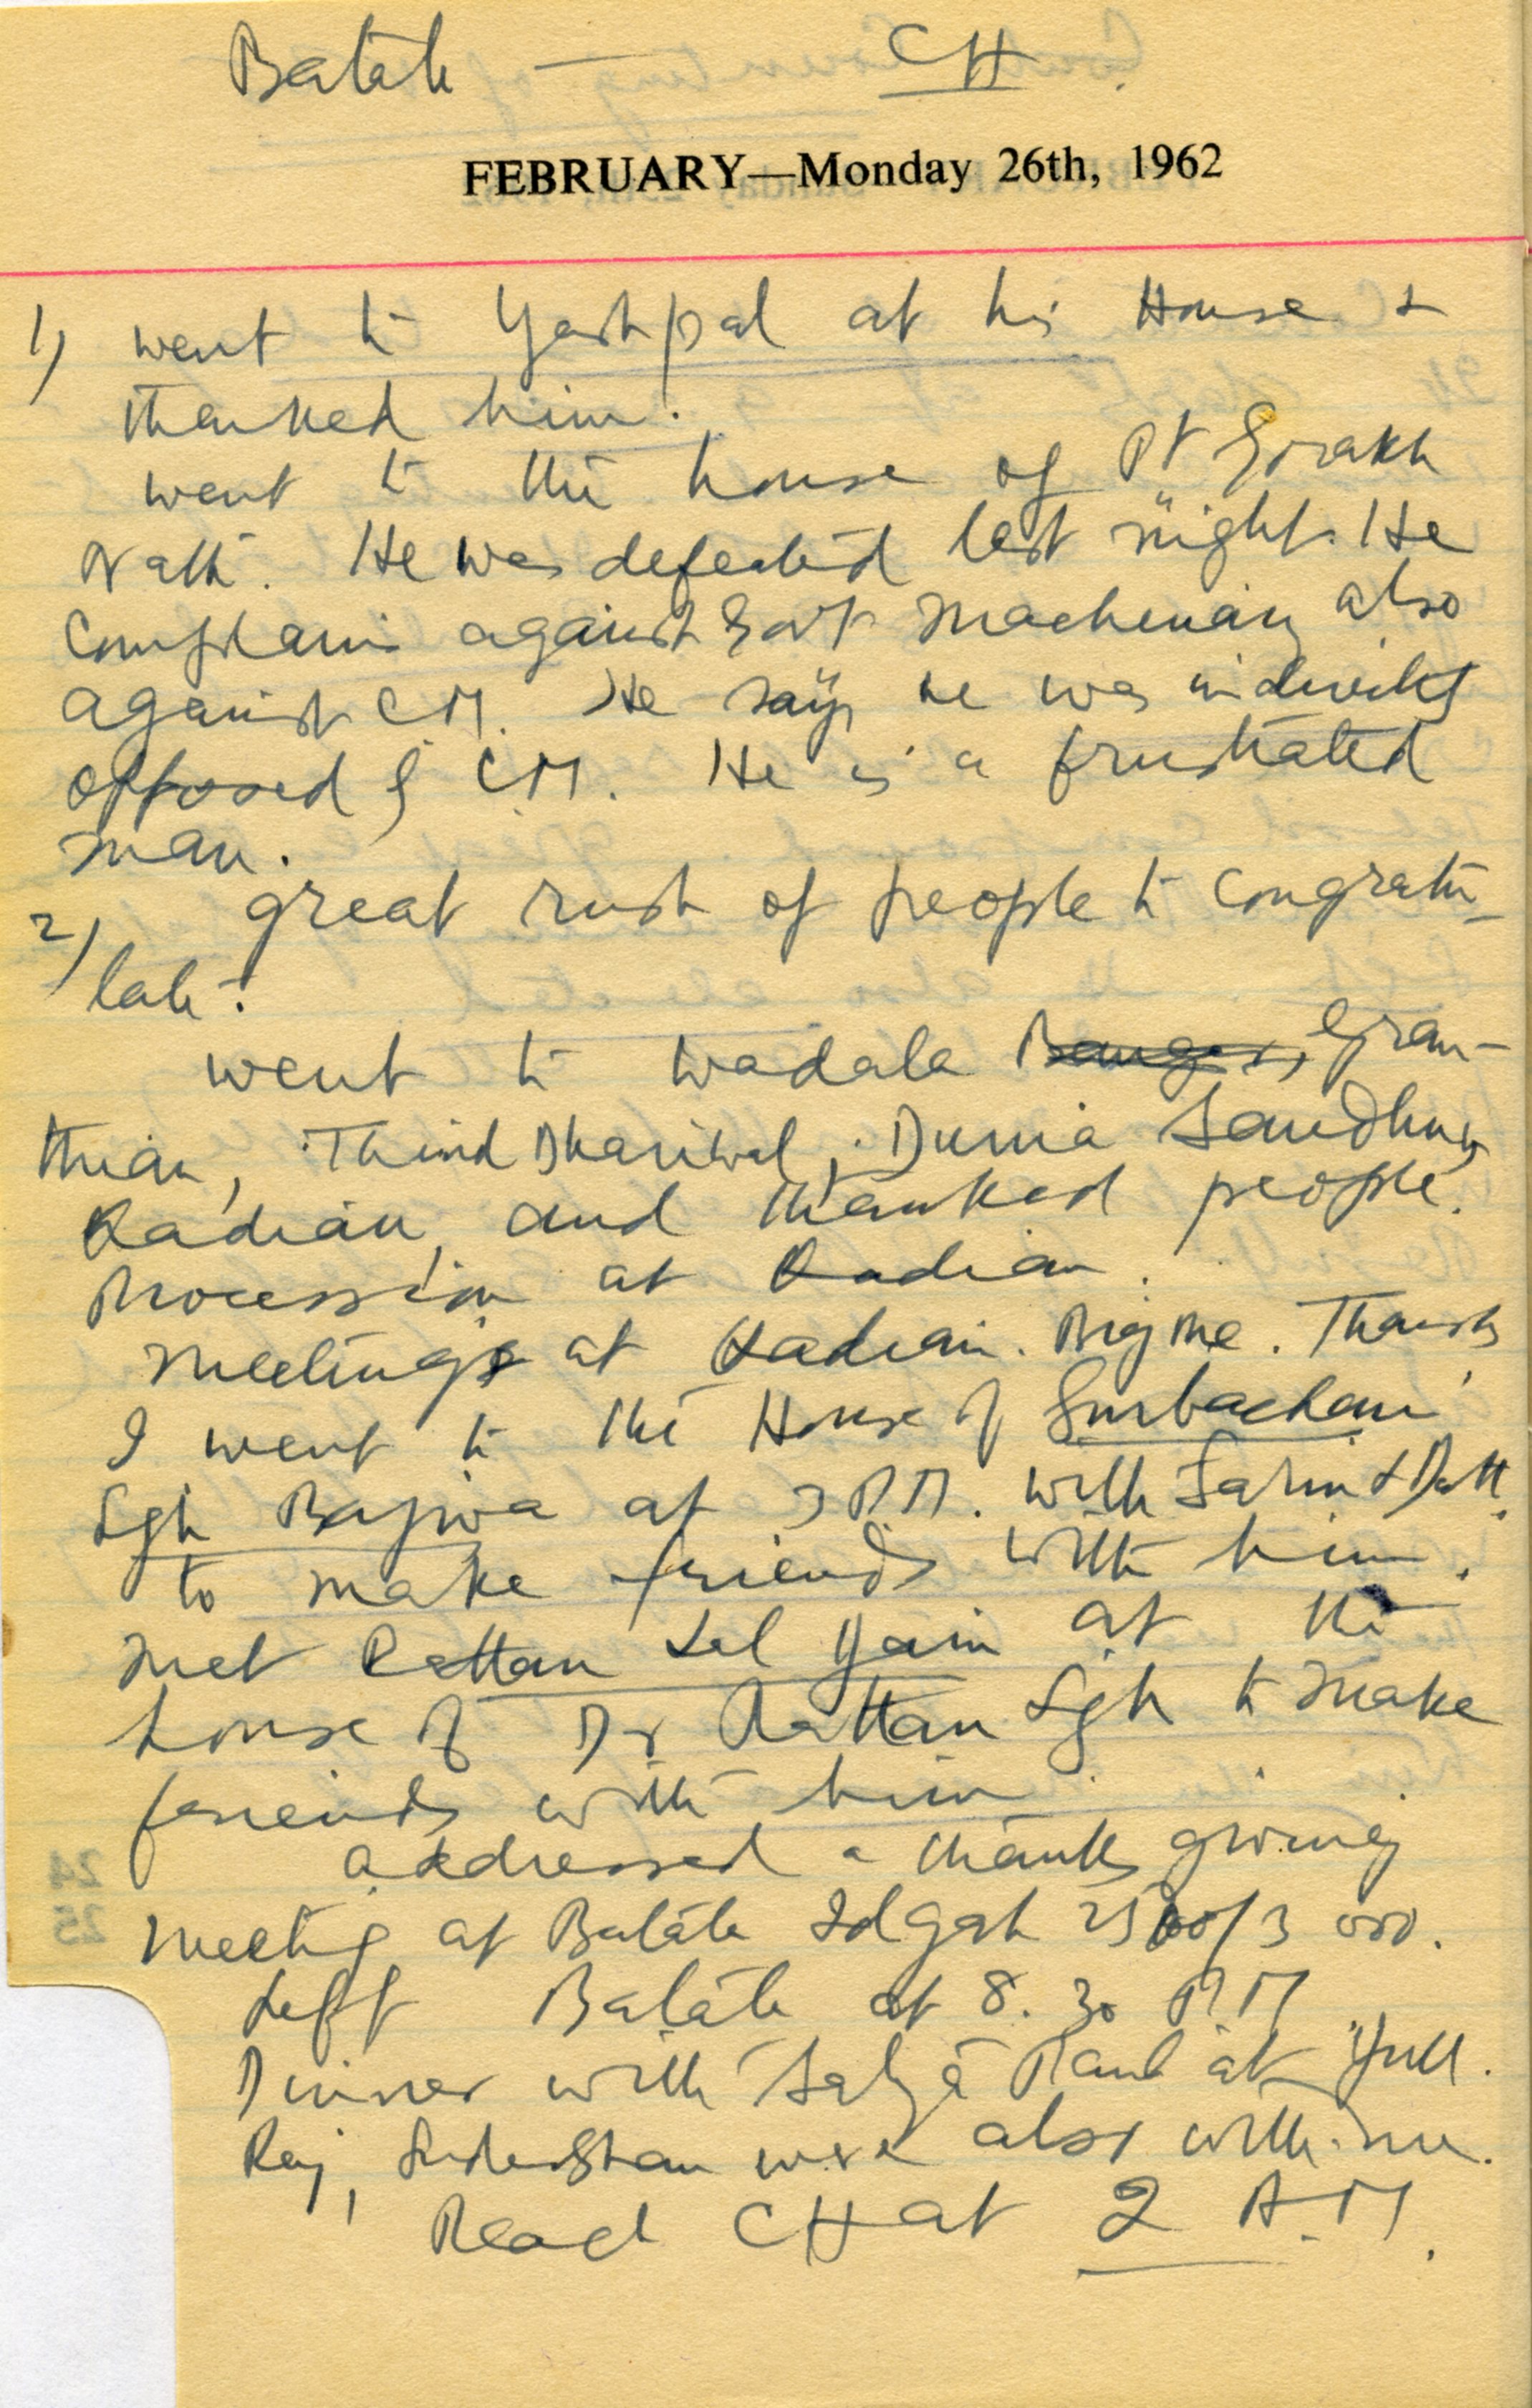 Batala — CH.
FEBRUARY—Monday 26th, 1962
1) went to Yashpal at his House &
thanked him.
went to the house of Pt Gorakh
Nath. He was defeated last night. He
complains against Govt machinary also
against CM. He says he was indirectly
opposed by CM. He is a frustrated
man.
2) great rush of people to congratu-
late.
went to Wadala Banger, Gran-
thian, Thind Dhariwal, Dunia Sandhu,
Kadian, and thanked people.
Procession at Kadian.
Meetings at Kadian. Big one. Thanks
I went to the House of Gurbachan
Sgh Bajwa at 3 PM. with Sarin & Datt.
to make friends with him.
met Rattan Lal Jain at the
house of Dr Rattan Sgh to make
friends with him.
addressed a thanks giving
meeting at Batala Idgah 2500/3000.
Left Batala at 8.30 PM
Dinner with Satya Paul at Jull.
Raj, Sudershan were also with me.
Reach CH at 2 A.M.